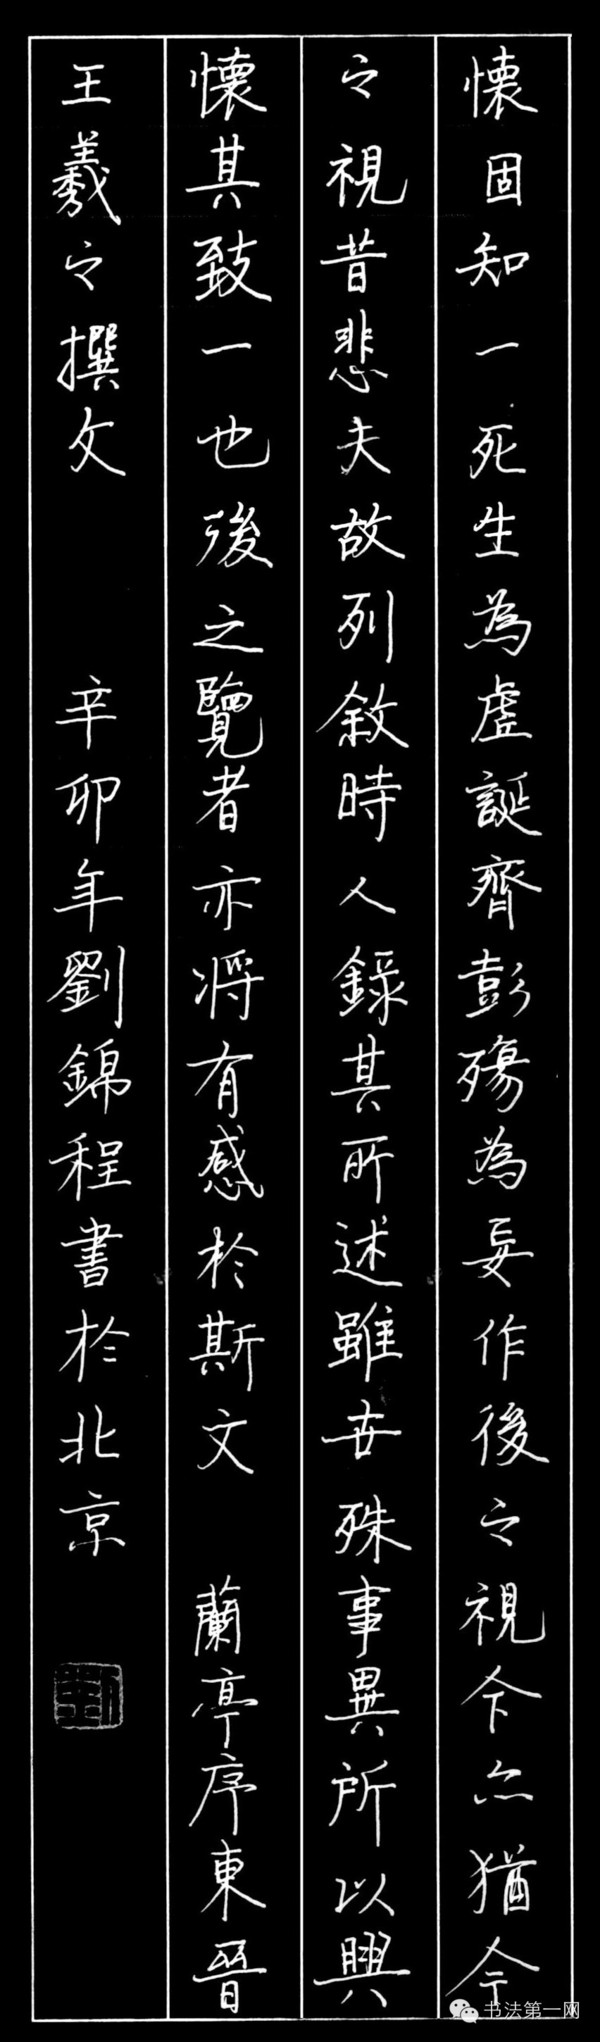 懷固知一死生為虛誕齊彭殤為妄作後之視今亦猶今
之視昔悲夫故列敘時人錄其所述雖世殊事異所以興
懷其致一也後之覽者亦將有感於斯文 蘭亭序東晉
王羲之撰文 辛卯年劉錦程書於北京
書法第一网